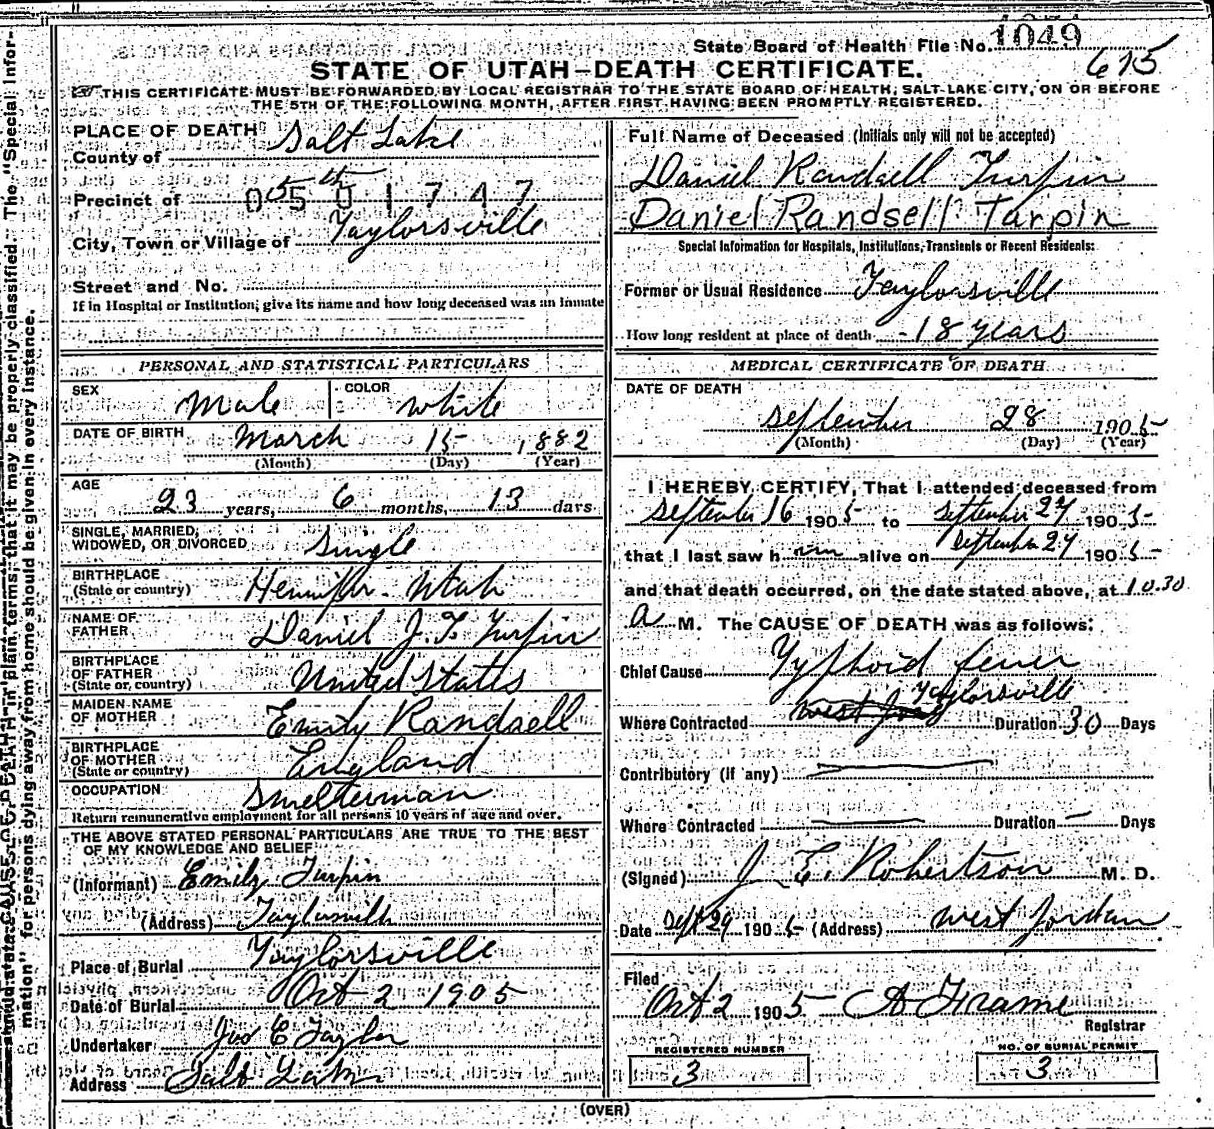 State Board of Health File No. 1049
675
STATE OF UTAH—DEATH CERTIFICATE.
THIS CERTIFICATE MUST BE FORWARDED BY LOCAL REGISTRAR TO THE STATE BOARD OF HEALTH, SALT LAKE CITY, ON OR BEFORE
THE 5TH OF THE FOLLOWING MONTH, AFTER FIRST HAVING BEEN PROMPTLY REGISTERED.
PLACE OF DEATH
County of Salt Lake
Precinct of 5th
0 5 0 1 7 4 7
City, Town or Village of Taylorsville
Street and No.
If in Hospital or Institution, give its name and how long deceased was an inmate
PERSONAL AND STATISTICAL PARTICULARS
SEX Male COLOR White
DATE OF BIRTH March 15 1882
(Month) (Day) (Year)
AGE
23 years, 6 months, 13 days
SINGLE, MARRIED,
WIDOWED, OR DIVORCED Single
BIRTHPLACE
(State or country) Utah
NAME OF
FATHER Daniel J. T. Turpin
BIRTHPLACE
OF FATHER
(State or country) United States
MAIDEN NAME
OF MOTHER Emily Randsell
BIRTHPLACE
OF MOTHER
(State or country) England
OCCUPATION Smelterman
Return remunerative employment for all persons 10 years of age and over.
THE ABOVE STATED PERSONAL PARTICULARS ARE TRUE TO THE BEST
OF MY KNOWLEDGE AND BELIEF
(Informant) Emily Turpin
(Address) Taylorsville
Place of Burial Taylorsville
Date of Burial Oct 2 1905
Undertaker Jos E Taylor
Address Salt Lake
Full Name of Deceased (Initials only will not be accepted)
Daniel Randsell Turpin
Daniel Randsell Tarpin
Special Information for Hospitals, Institutions, Transients or Recent Residents:
Former or Usual Residence Taylorsville
How long resident at place of death 18 years
MEDICAL CERTIFICATE OF DEATH
DATE OF DEATH
September 28 1905
(Month) (Day) (Year)
I HEREBY CERTIFY, That I attended deceased from
September 16 1905 to September 27 1905
that I last saw him alive on September 27 1905
and that death occurred, on the date stated above, at 10.30
a M. The CAUSE OF DEATH was as follows:
Chief Cause Typhoid fever
Where Contracted Taylorsville Duration 30 Days
Contributory (if any)
Where Contracted Duration — Days
(Signed) J. E. Robertson M. D.
Date Sept 29 1905 (Address) West Jordan
Filed
Oct 2 1905 A Frame
Registrar
REGISTERED NUMBER
3
NO. OF BURIAL PERMIT
3
(OVER)
mation" for persons dying away from home should be given in every instance.